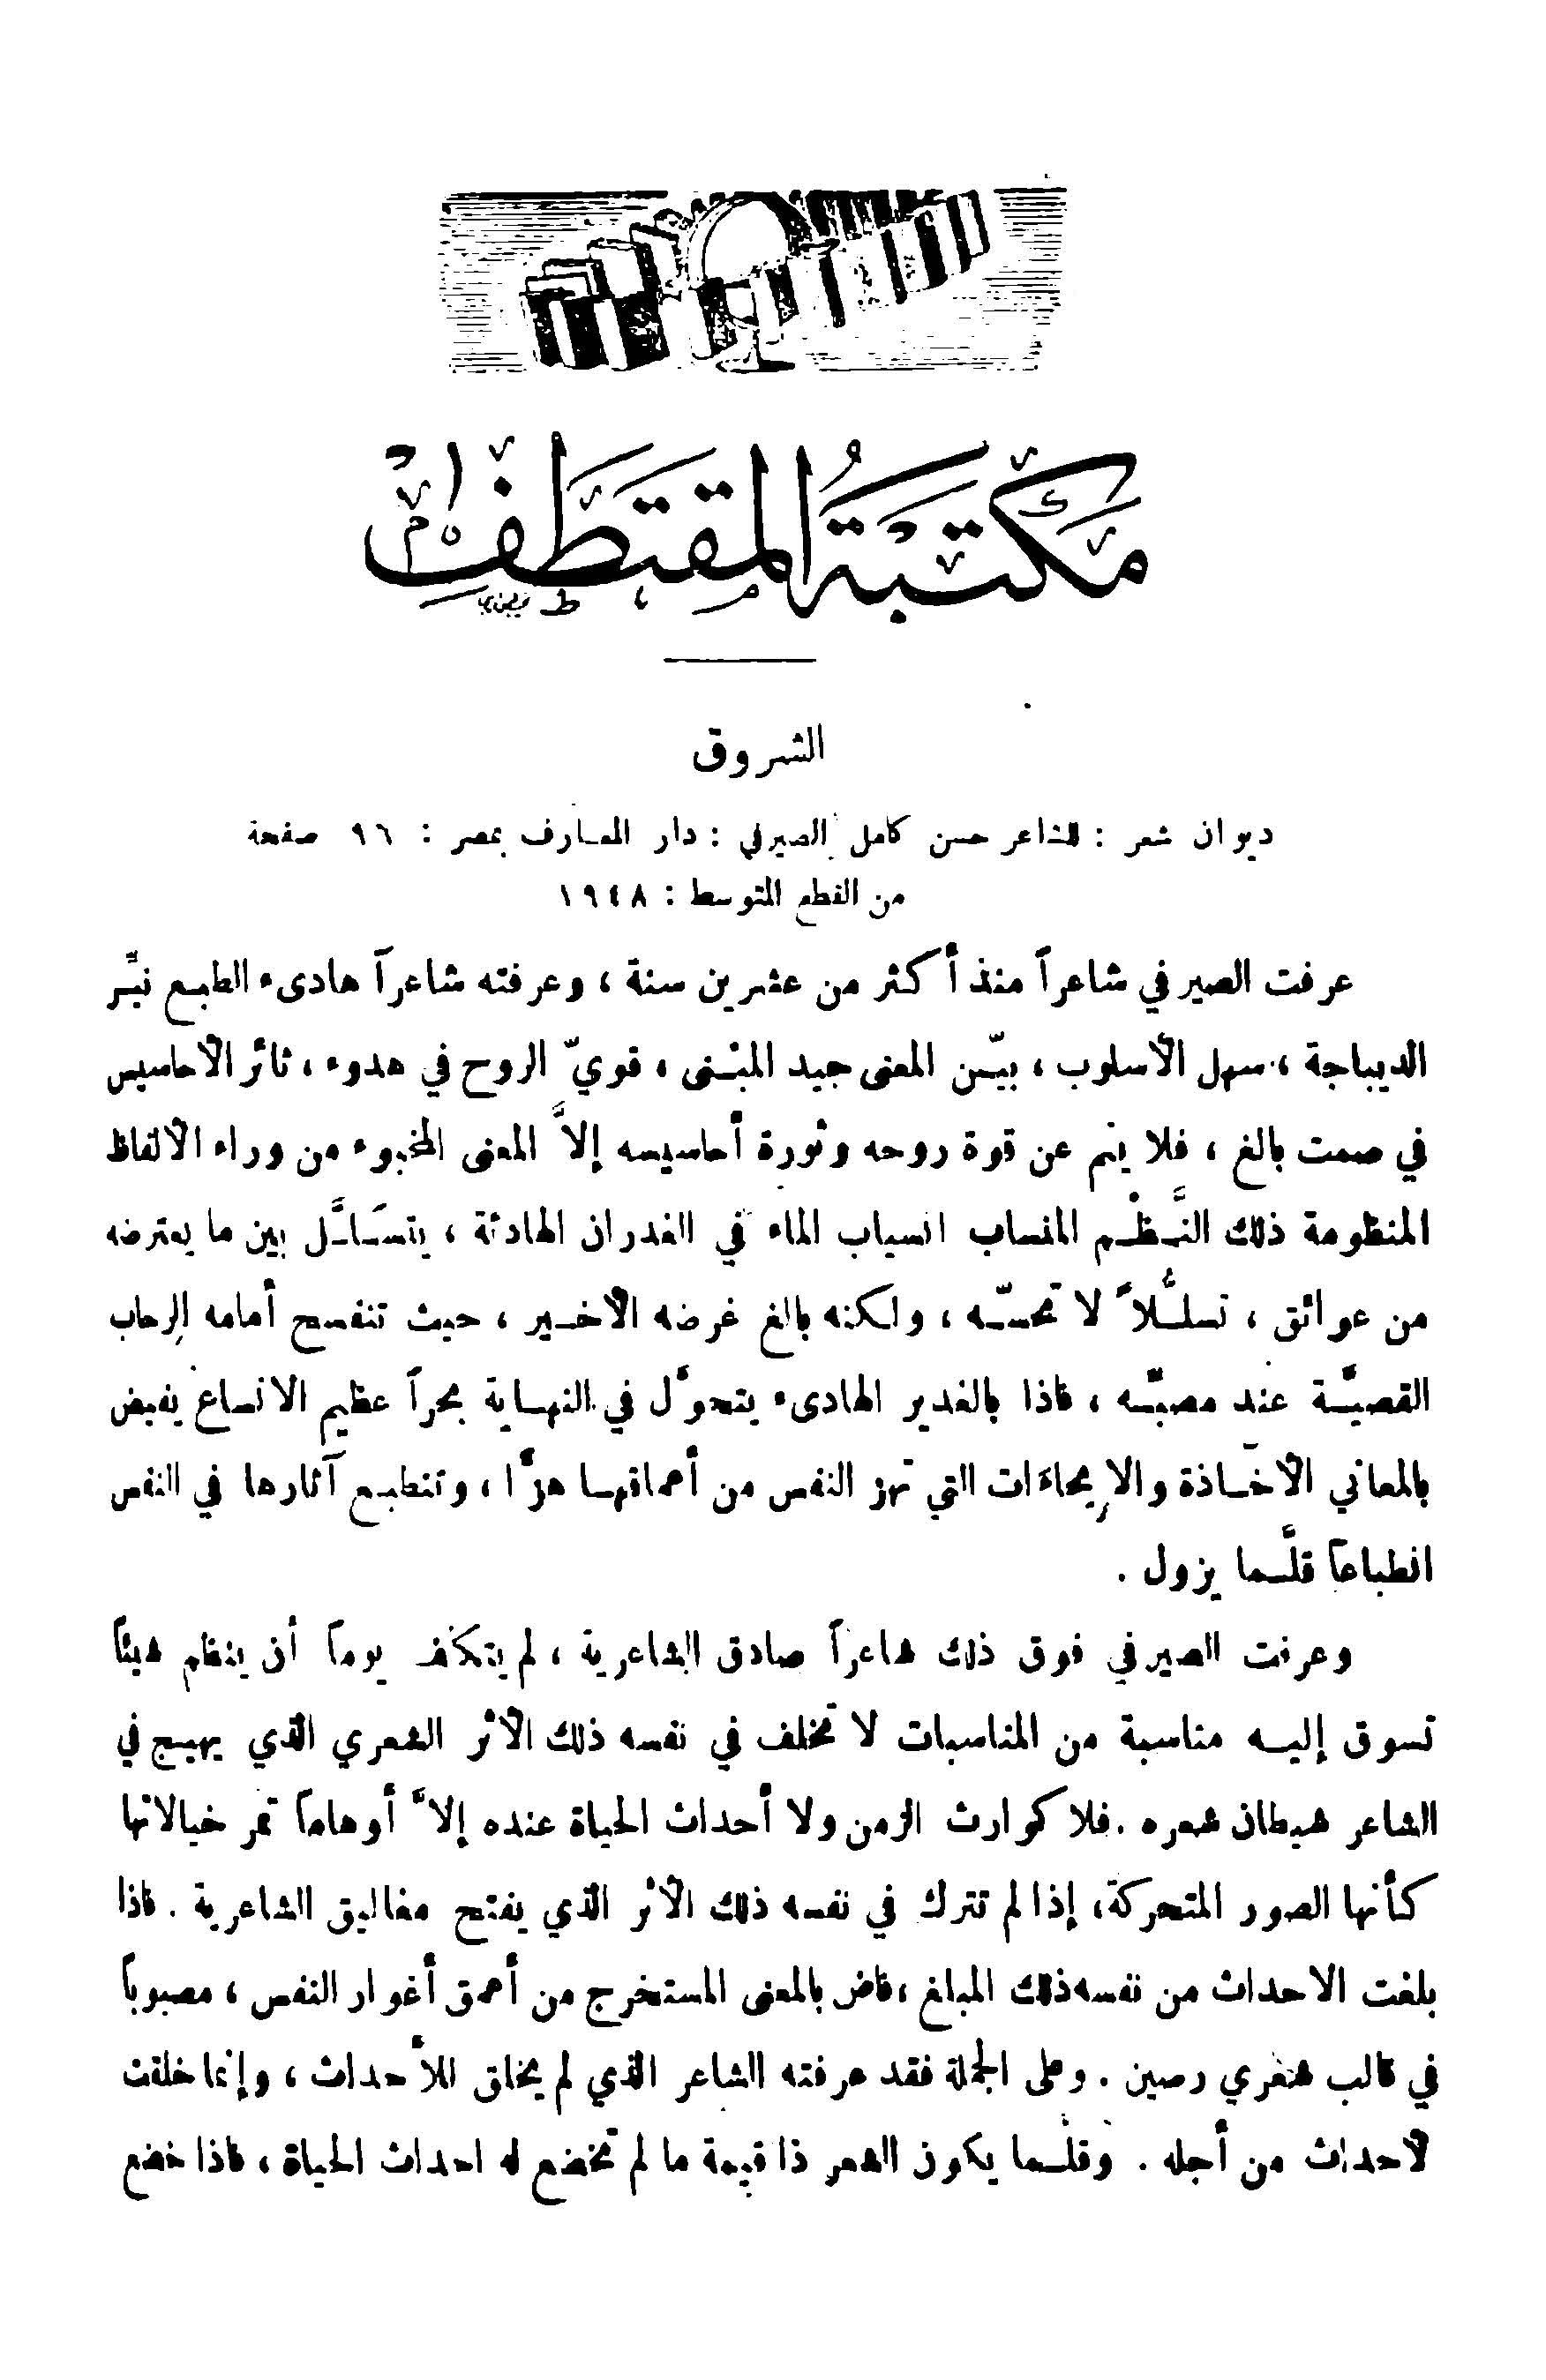 مَكتبَةُ المقتَطَفِ
الشروق
ديوان شعر : للشاعر حسن كامل الصيرفي : دار المعارف بمصر : ٩٦ صفحة
من القطع المتوسط : ١٩٤٨
عرفت الصيرفي شاعراً منذ أكثر من عشرين سنة ، وعرفته شاعراً هادىء الطبع نيِّر
الديباجة ، سهل الأسلوب ، بيّن المعنى جيد المبنى ، قويّ الروح في هدوء ، ثائر الأحاسيس
في صمت بالغ ، فلا ينم عن قوة روحه وثورة أحاسيسه إلاَّ المعنى المخبوء من وراء الألفاظ
المنظومة ذلك النَّظْم المنساب انسياب الماء في الغدران الهادئة ، يتسَلَّل بين ما يعترضه
من عوائق ، تسلُّلاً لا تحسّه ، ولكنه بالغ غرضه الأخير ، حيث تنفسح أمامه الرحاب
القصيَّة عند مصبّه ، فاذا بالغدير الهادىء يتحوَّل في النهاية بحراً عظيم الاتساع يفيض
بالمعاني الأخّاذة والإيحاءات التي تهز النفس من أعماقها هزًّا ، وتنطبع آثارها في النفس
انطباعاً قلَّما يزول .
وعرفت الصيرفي فوق ذلك شاعراً صادق الشاعرية ، لم يتكلف يوماً أن ينظم شيئاً
تسوق إليه مناسبة من المناسبات لا تخلف في نفسه ذلك الأثر الشعري الذي يهيج في
الشاعر شيطان شعره . فلا كوارث الزمن ولا أحداث الحياة عنده إلاَّ أوهاماً تمر خيالاتها
كأنها الصور المتحركة، إذا لم تترك في نفسه ذلك الأثر الذي يفتح مغاليق الشاعرية . فاذا
بلغت الاحداث من نفسه ذلك المبلغ ، فاض بالمعنى المستخرج من أعمق أغوار النفس ، مصبوباً
في قالب شعري رصين . وعلى الجملة فقد عرفته الشاعر الذي لم يخلق للأحداث ، وإنما خلقت
لأحداث من أجله . وقلَّما يكون الشعر ذا قيمة ما لم تخضع له احداث الحياة ، فاذا خضع